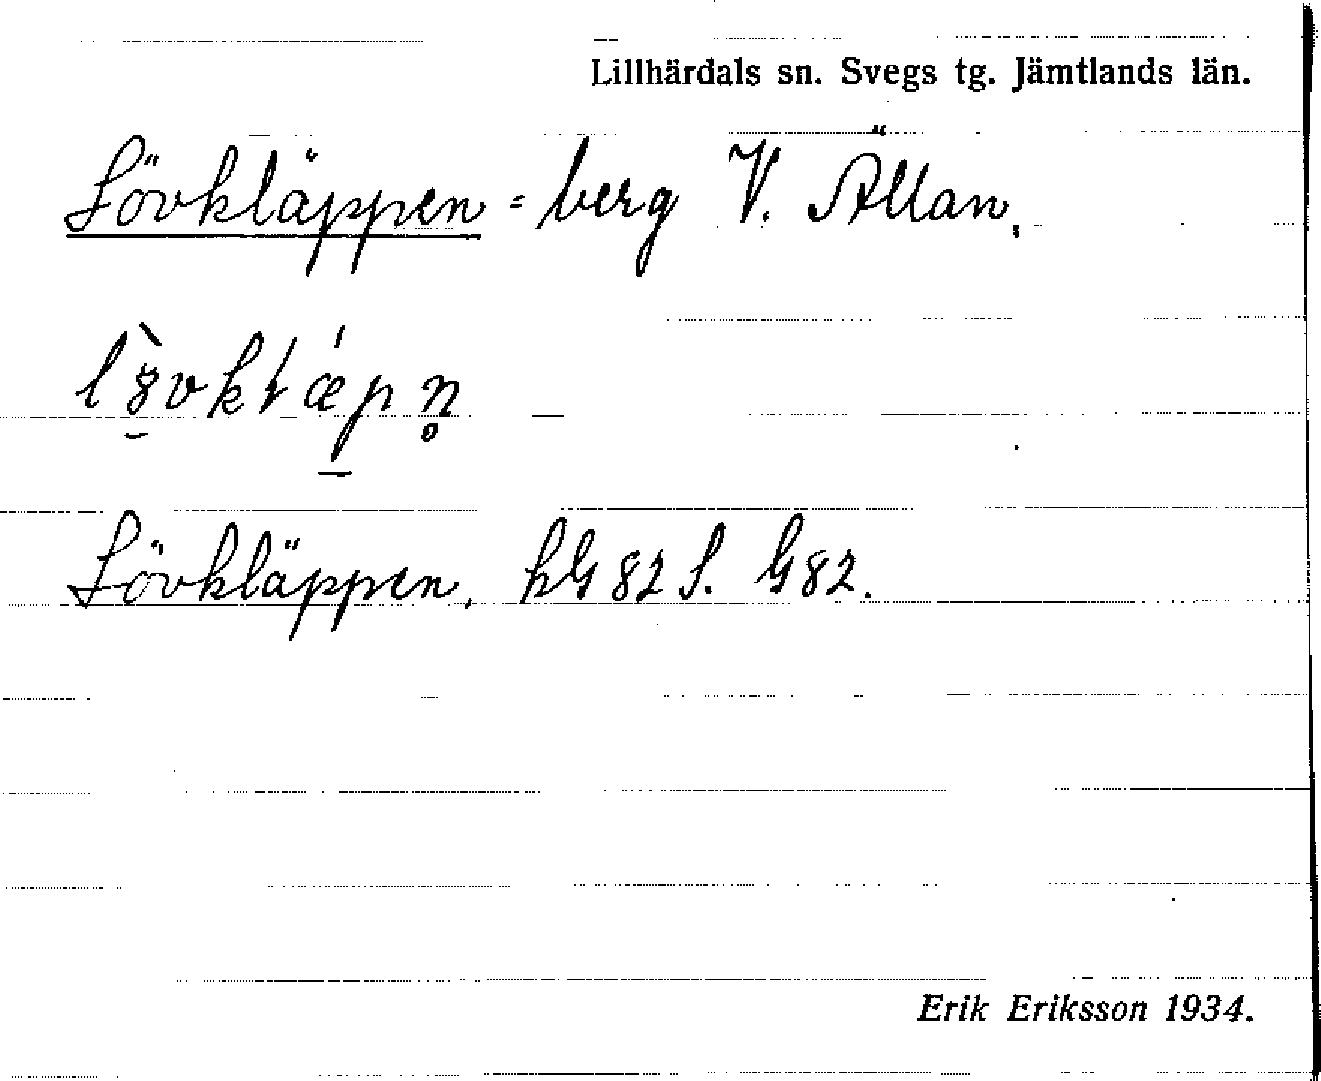 Lillhärdals sn. Svegs tg. Jämtlands län.
Lövkläppen = berg V. Ällan,
Lövkläppen, hG 82 S. G 82.
Erik Eriksson 1934.